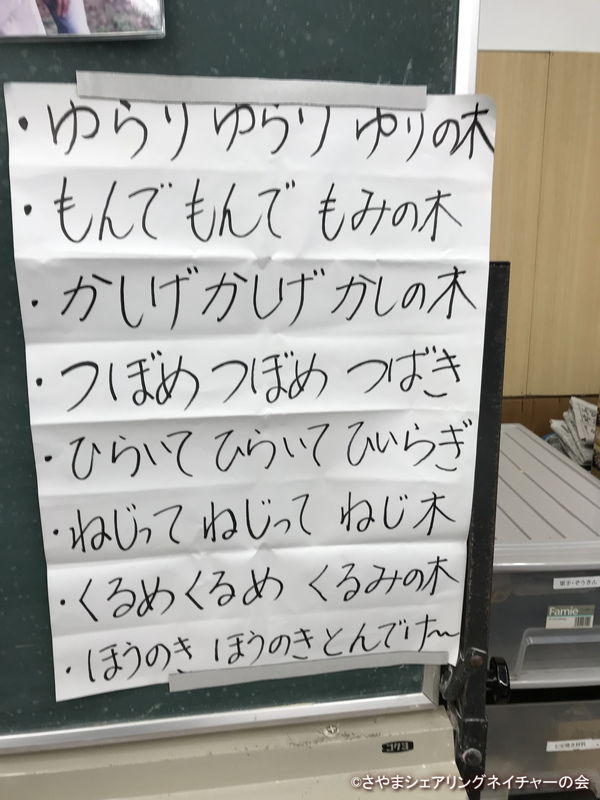 ・ゆらり ゆらり ゆりの木
・もんで もんで もみの木
・かしげ かしげ かしの木
・つぼめ つぼめ つばき
・ひらいて ひらいて ひいらぎ
・ねじって ねじって ねじ木
・くるめ くるめ くるみの木
・ほうのき ほうのき とんでけ〜
Famie
コクヨ
©さやまシェアリングネイチャーの会